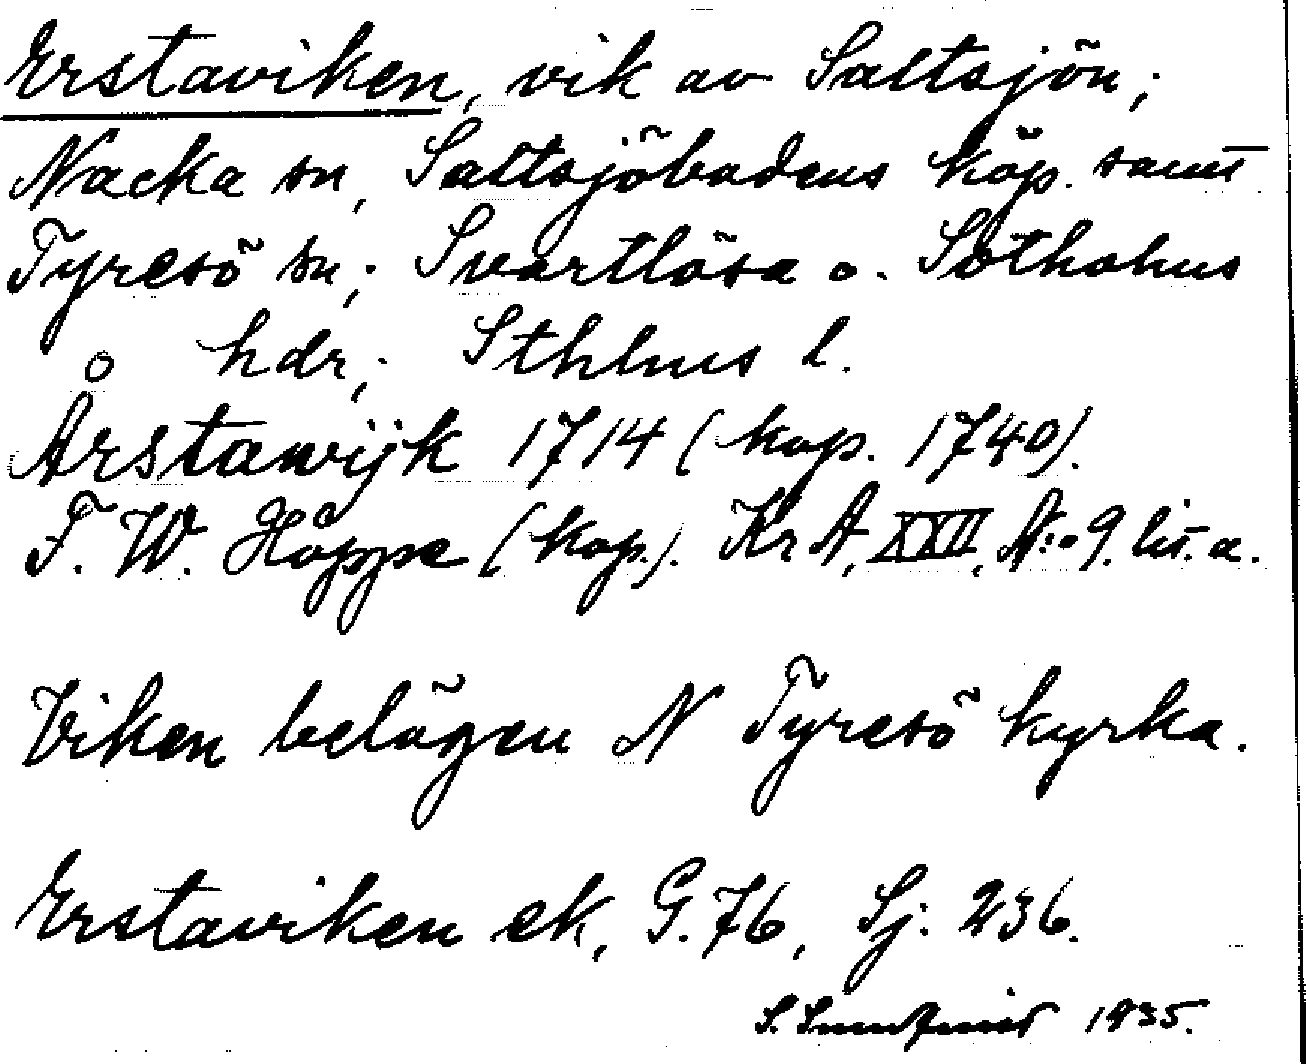 Erstaviken, vik av Saltsjön;
Nacka sn, Saltsjöbadens köp. samt
Tyresö sn; Svartlösa o. Sotholms
hdr; Sthlms l.
Årstawijk 1714 (kop. 1740).
F. W. Hoppe (kop.). Kr A, XXII, N:o 9. lit. a.
Viken belägen N Tyresö kyrka.
Erstaviken ek, G. 76, Sj: 236.
S. 1935.